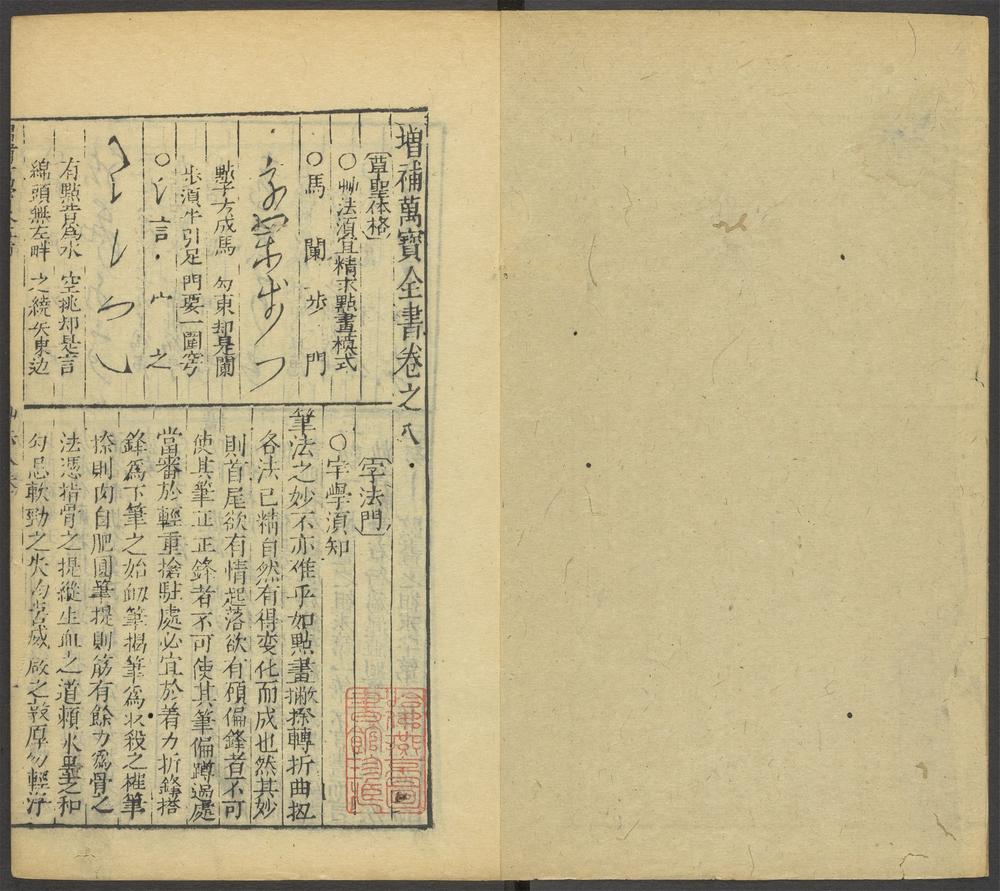 增補萬寳全書卷之八
草聖体格
○艸法湏宜精求點畫模式
○馬 闌 步 門
點子方成馬 勾東却是闌
步湏牛引足 門要一围穹
○氵言宀之
有點皆為水 空挑却是言
綿頭無左畔 之繞矢東边
字法門
○字學湏知
筆法之妙不亦难乎如點畫撇捺轉折曲扭
各法已精自然有得变化而成也然其妙
則首尾欲有情起落欲有顧偏鋒者不可
使其筆正正鋒者不可使其筆偏蹲過處
當審於輕重搶駐處必宜於着力折鋒搭
鋒為下筆之始衂筆揭筆為收殺之權筆
捺則肉自肥圓筆提則筋有餘力為骨之
法憑指骨之提縱生血之道頼水墨之和
勾忌軟勁之失